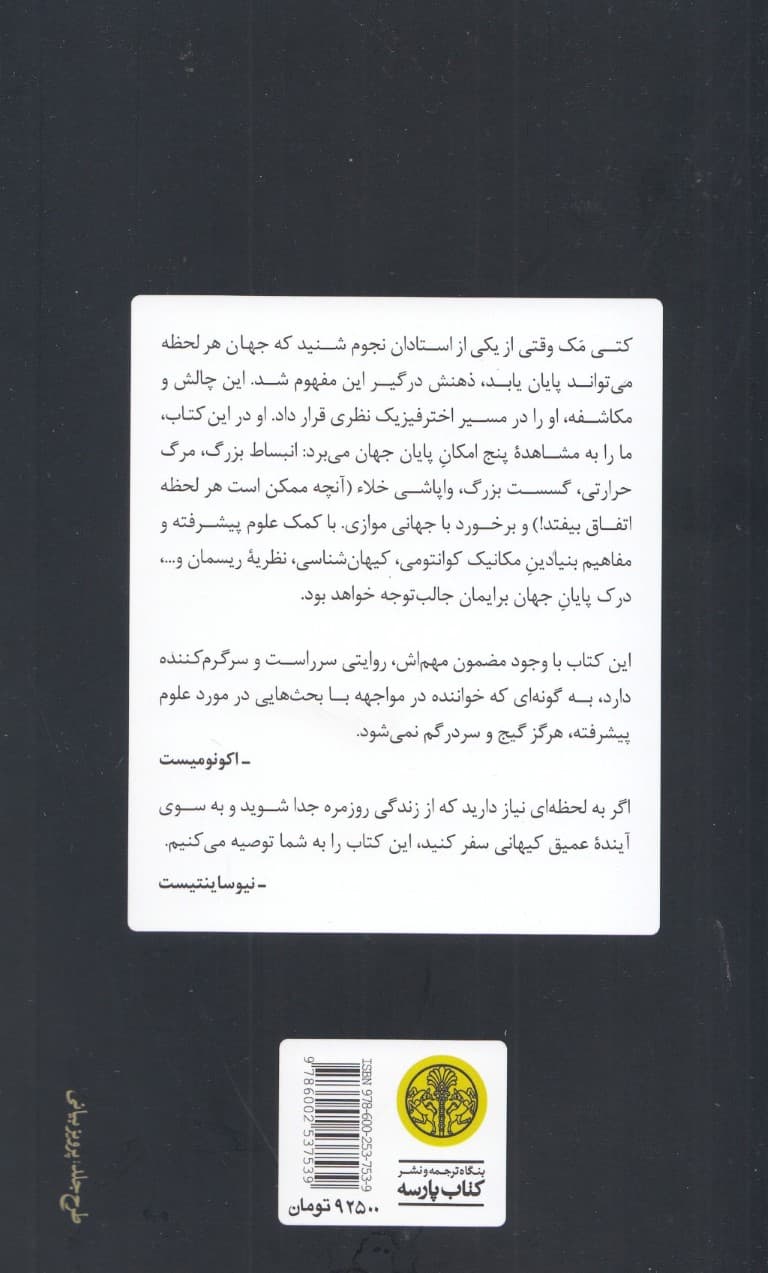 کتی مَک وقتی از یکی از استادان نجوم شنید که جهان هر لحظه
می‌تواند پایان یابد، ذهنش درگیر این مفهوم شد. این چالش و
مکاشفه، او را در مسیر اخترفیزیک نظری قرار داد. او در این کتاب،
ما را به مشاهدهٔ پنج امکانِ پایان جهان می‌برد: انبساط بزرگ، مرگ
حرارتی، گسست بزرگ، واپاشی خلاء (آنچه ممکن است هر لحظه
اتفاق بیفتد!) و برخورد با جهانی موازی. با کمک علوم پیشرفته و
مفاهیم بنیادینِ مکانیک کوانتومی، کیهان‌شناسی، نظریهٔ ریسمان و...،
درک پایانِ جهان برایمان جالب‌توجه خواهد بود.
این کتاب با وجود مضمون مهم‌اش، روایتی سرراست و سرگرم‌کننده
دارد، به گونه‌ای که خواننده در مواجهه با بحث‌هایی در مورد علوم
پیشرفته، هرگز گیج و سردرگم نمی‌شود.
ـ اکونومیست
اگر به لحظه‌ای نیاز دارید که از زندگی روزمره جدا شوید و به سوی
آیندهٔ عمیق کیهانی سفر کنید، این کتاب را به شما توصیه می‌کنیم.
ـ نیوساینتیست
بنگاه ترجمه و نشر
کتاب پارسه
ISBN 978-600-253-753-9
9 786002 537539
۹۲۵۰۰ تومان
طرح جلد: پرویز بیانی